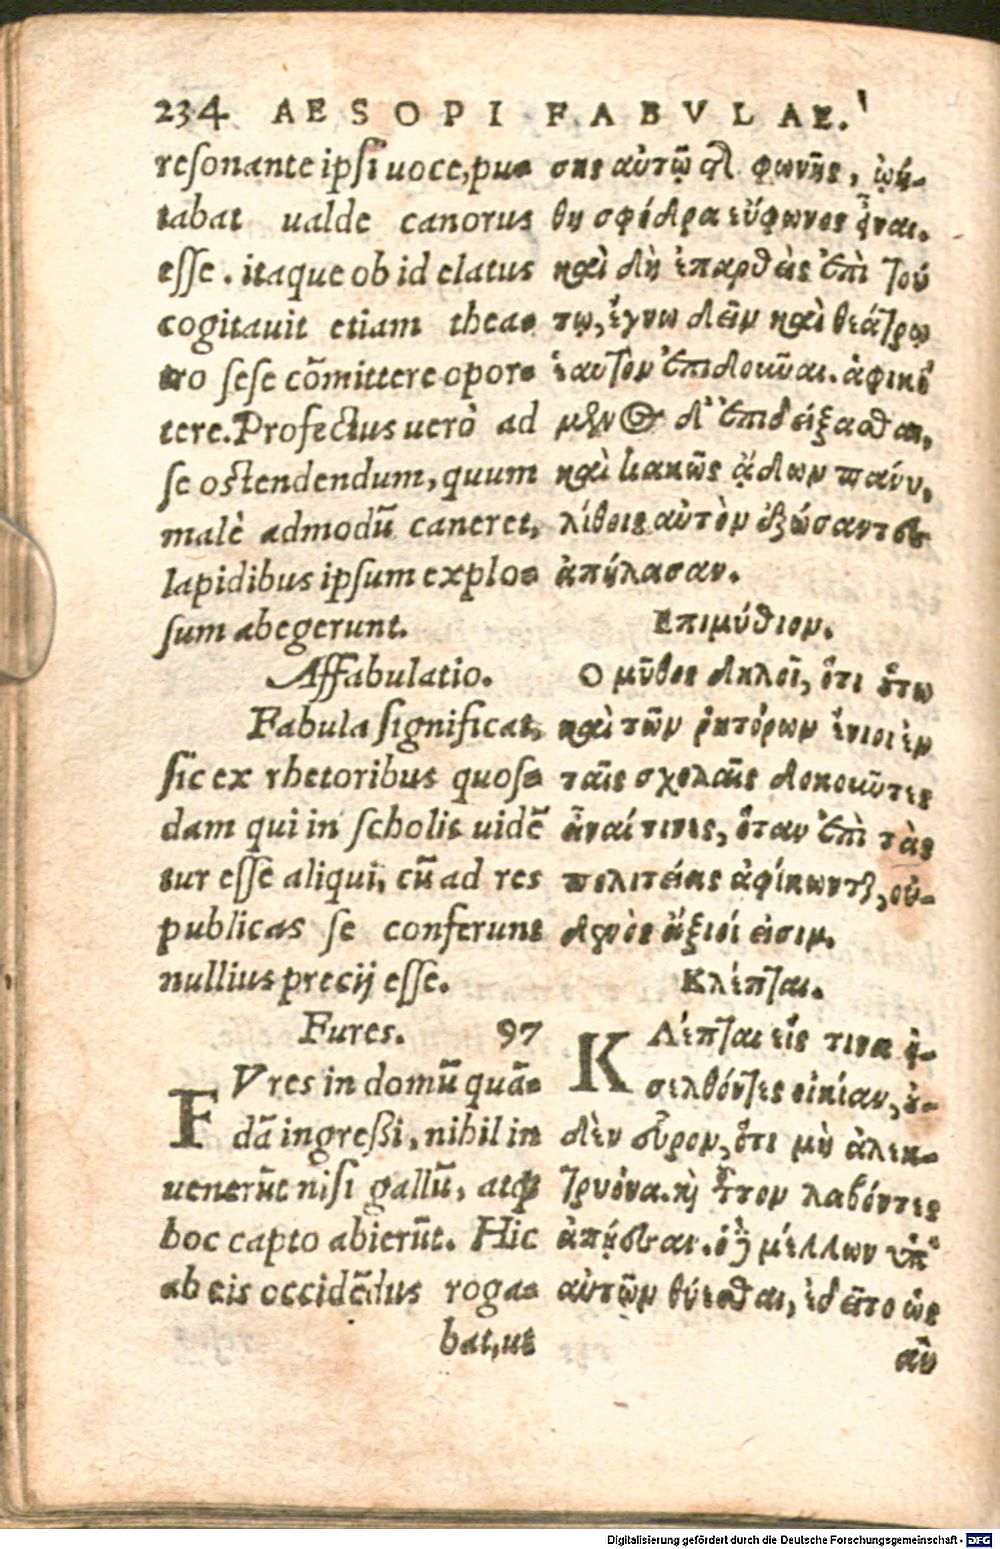 234 AESOPI FABVLAE.
resonante ipsi uoce, pu-
tabat ualde canorus
esse. itaque ob id elatus
cogitauit etiam thea-
tro sese cõmittere opor-
tere. Profectus uerò ad
se ostendendum, quum
malè admodũ caneret,
lapidibus ipsum explo-
sum abegerunt.
Affabulatio.
Fabula significat,
sic ex rhetoribus quos-
dam qui in scholis uidẽ
tur esse aliqui, cũ ad res
publicas se conferunt
nullius precij esse.
Fures. 97
FVres in domũ quã-
dã ingreßi, nihil in
uenerũt nisi gallũ, atq;
hoc capto abierũt. Hic
ab eis occidẽdus roga-
bat, ut
σης αὐτῷ τῆς φωνῆς, ᾠή-
θη σφόδρα εὔφωνος εἶναι.
καὶ δὴ ἐπαρθεὶς ἐπὶ τού
τῳ, ἔγνω δεῖν καὶ θεάτρῳ
ἑαυτὸν ἐπιδοκῦναι. ἀφικό
μενος δ' ἐπιδείξασθαι,
καὶ κακῶς ᾄδων πάνυ,
λίθοις αὐτὸν ἐξώσαντες
ἀπήλασαν.
Επιμύθιον.
Ο μῦθος δηλοῖ, ὅτι οὕτω
καὶ τῶν ῥητόρων ἔνιοι ἐν
ταῖς σχολαῖς δοκοῦντες
εἶναί τινες, ὅταν ἐπὶ τὰς
πολιτείας ἀφίκωνται, οὐ-
δενὸς ἄξιοί εἰσιν.
Κλέπται.
ΚΛέπται εἴς τινα εἰ-
σελθόντες οἰκίαν, οὐ-
δὲν εὗρον, ὅτι μὴ ἀλεκ-
τρυόνα. καὶ τοῦτον λαβόντες
ἀπῄεσαν. ὁ δὲ μέλλων ὑπ'
αὐτῶν θύεσθαι, ἐδεῖτο ὡς
αὖ
Digitalisierung gefördert durch die Deutsche Forschungsgemeinschaft - DFG